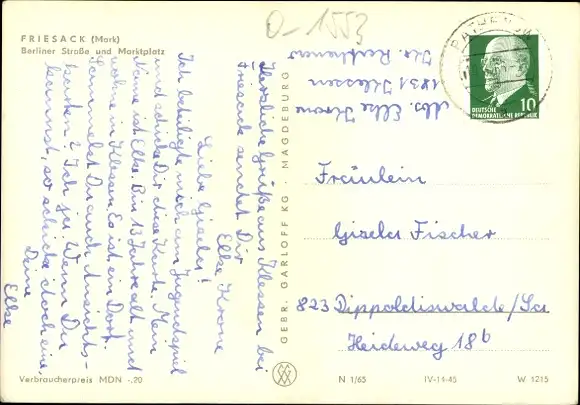 FRIESACK (Mark)
Berliner Straße und Marktplatz
O-1553
Abs. Elke Krone
1831 Klessen
Kr. Rathenow
DEUTSCHE
DEMOKRATISCHE REPUBLIK
10
Herzliche Grüße aus Klessen bei
Friesack sendet Dir
Elke Krone
Liebe Gisela!
Ich beteiligte mich am Jugendspiel
und schicke Dir diese Karte. Mein
Name ist Elke. Bin 13 Jahre alt und
wohne in Klessen. Es ist ein Dorf.
Sammelst Du auch Ansichts-
karten? Ich ja. Wenn Du
kannst, so schicke doch eine,
Deine
Elke
GEBR. GARLOFF KG · MAGDEBURG
Fräulein
Gisela Fischer
823 Dippoldiswalde/Sa
Heideweg 18b
Verbraucherpreis MDN -.20
N 1/65
IV-14-45
W 1215